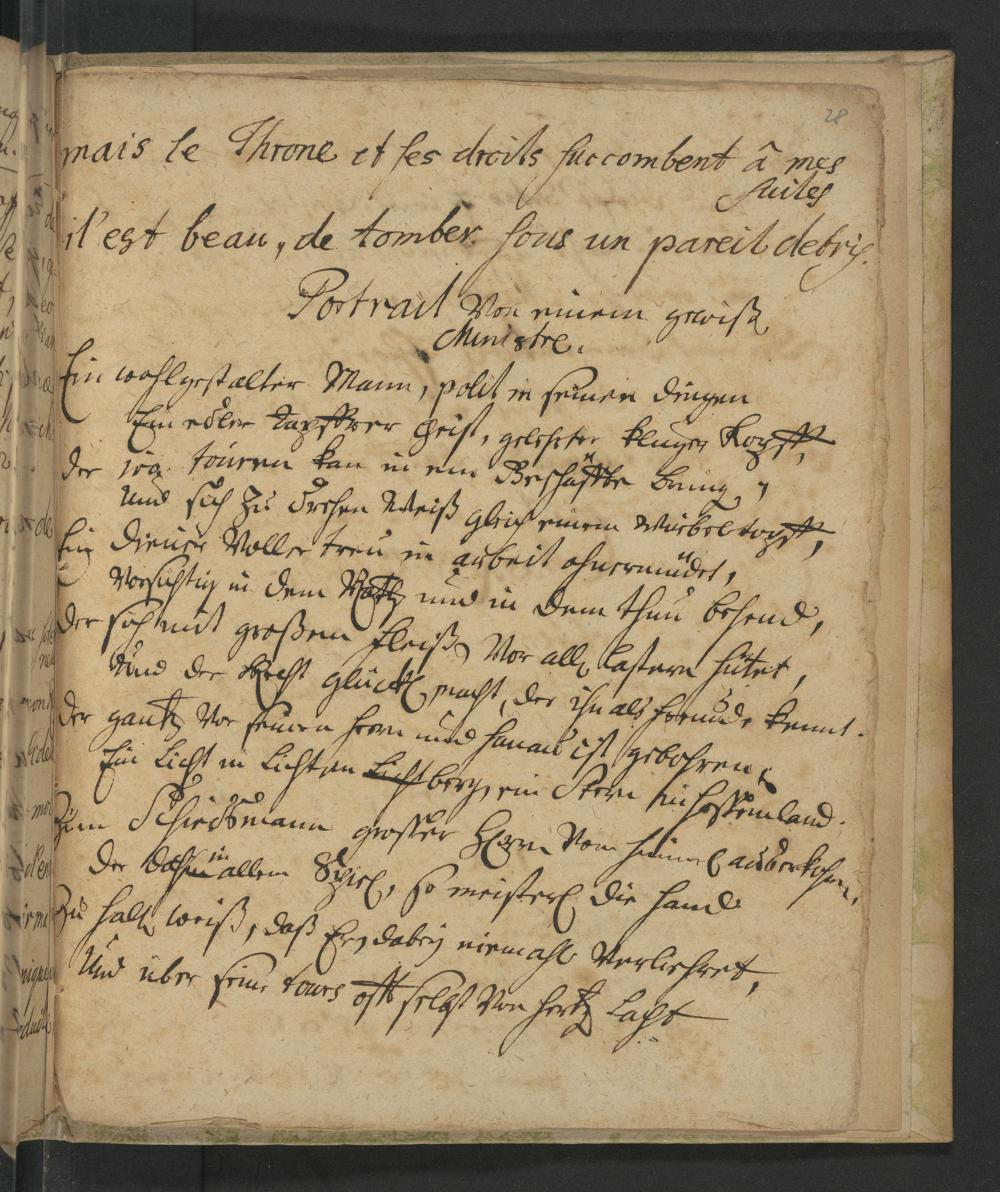 28
mais le Throne et ses droits succombent â mes
suites
il'est beau, de tomber sous un pareil debris.
Portrait Von einem gewiß
Ministre.
Ein wohlgestalter Mann, polit in seinen dingen
Ein edler tapfferer Geist, gelehrter kluger Kopff,
der touren kan in ein Geschäffte bring,
und sich zu drehen weiß gleich einem Würbeltopff,
Ein diener Voller treu in arbeit ohnermüdet,
Vorsichtig in dem Rath und in dem thun behend,
der sich mit großem fleiß Vor alle lastern hütet,
Und der Recht glückl macht, der ihn als freunde kennt.
der gantz Vor seinen Herrn und Hanau ist gebohren
Ein Licht in Lichten berg, ein Stern in Hessenland.
Zum Schiedsmann grosser Herrn Vom himmel außerkohren,
der in allem Spiel, so meisterl die hand
Zu halten weiß, daß Er dabey niemahls Verliehret,
Und über seine tours offt selbst Von hertz lacht